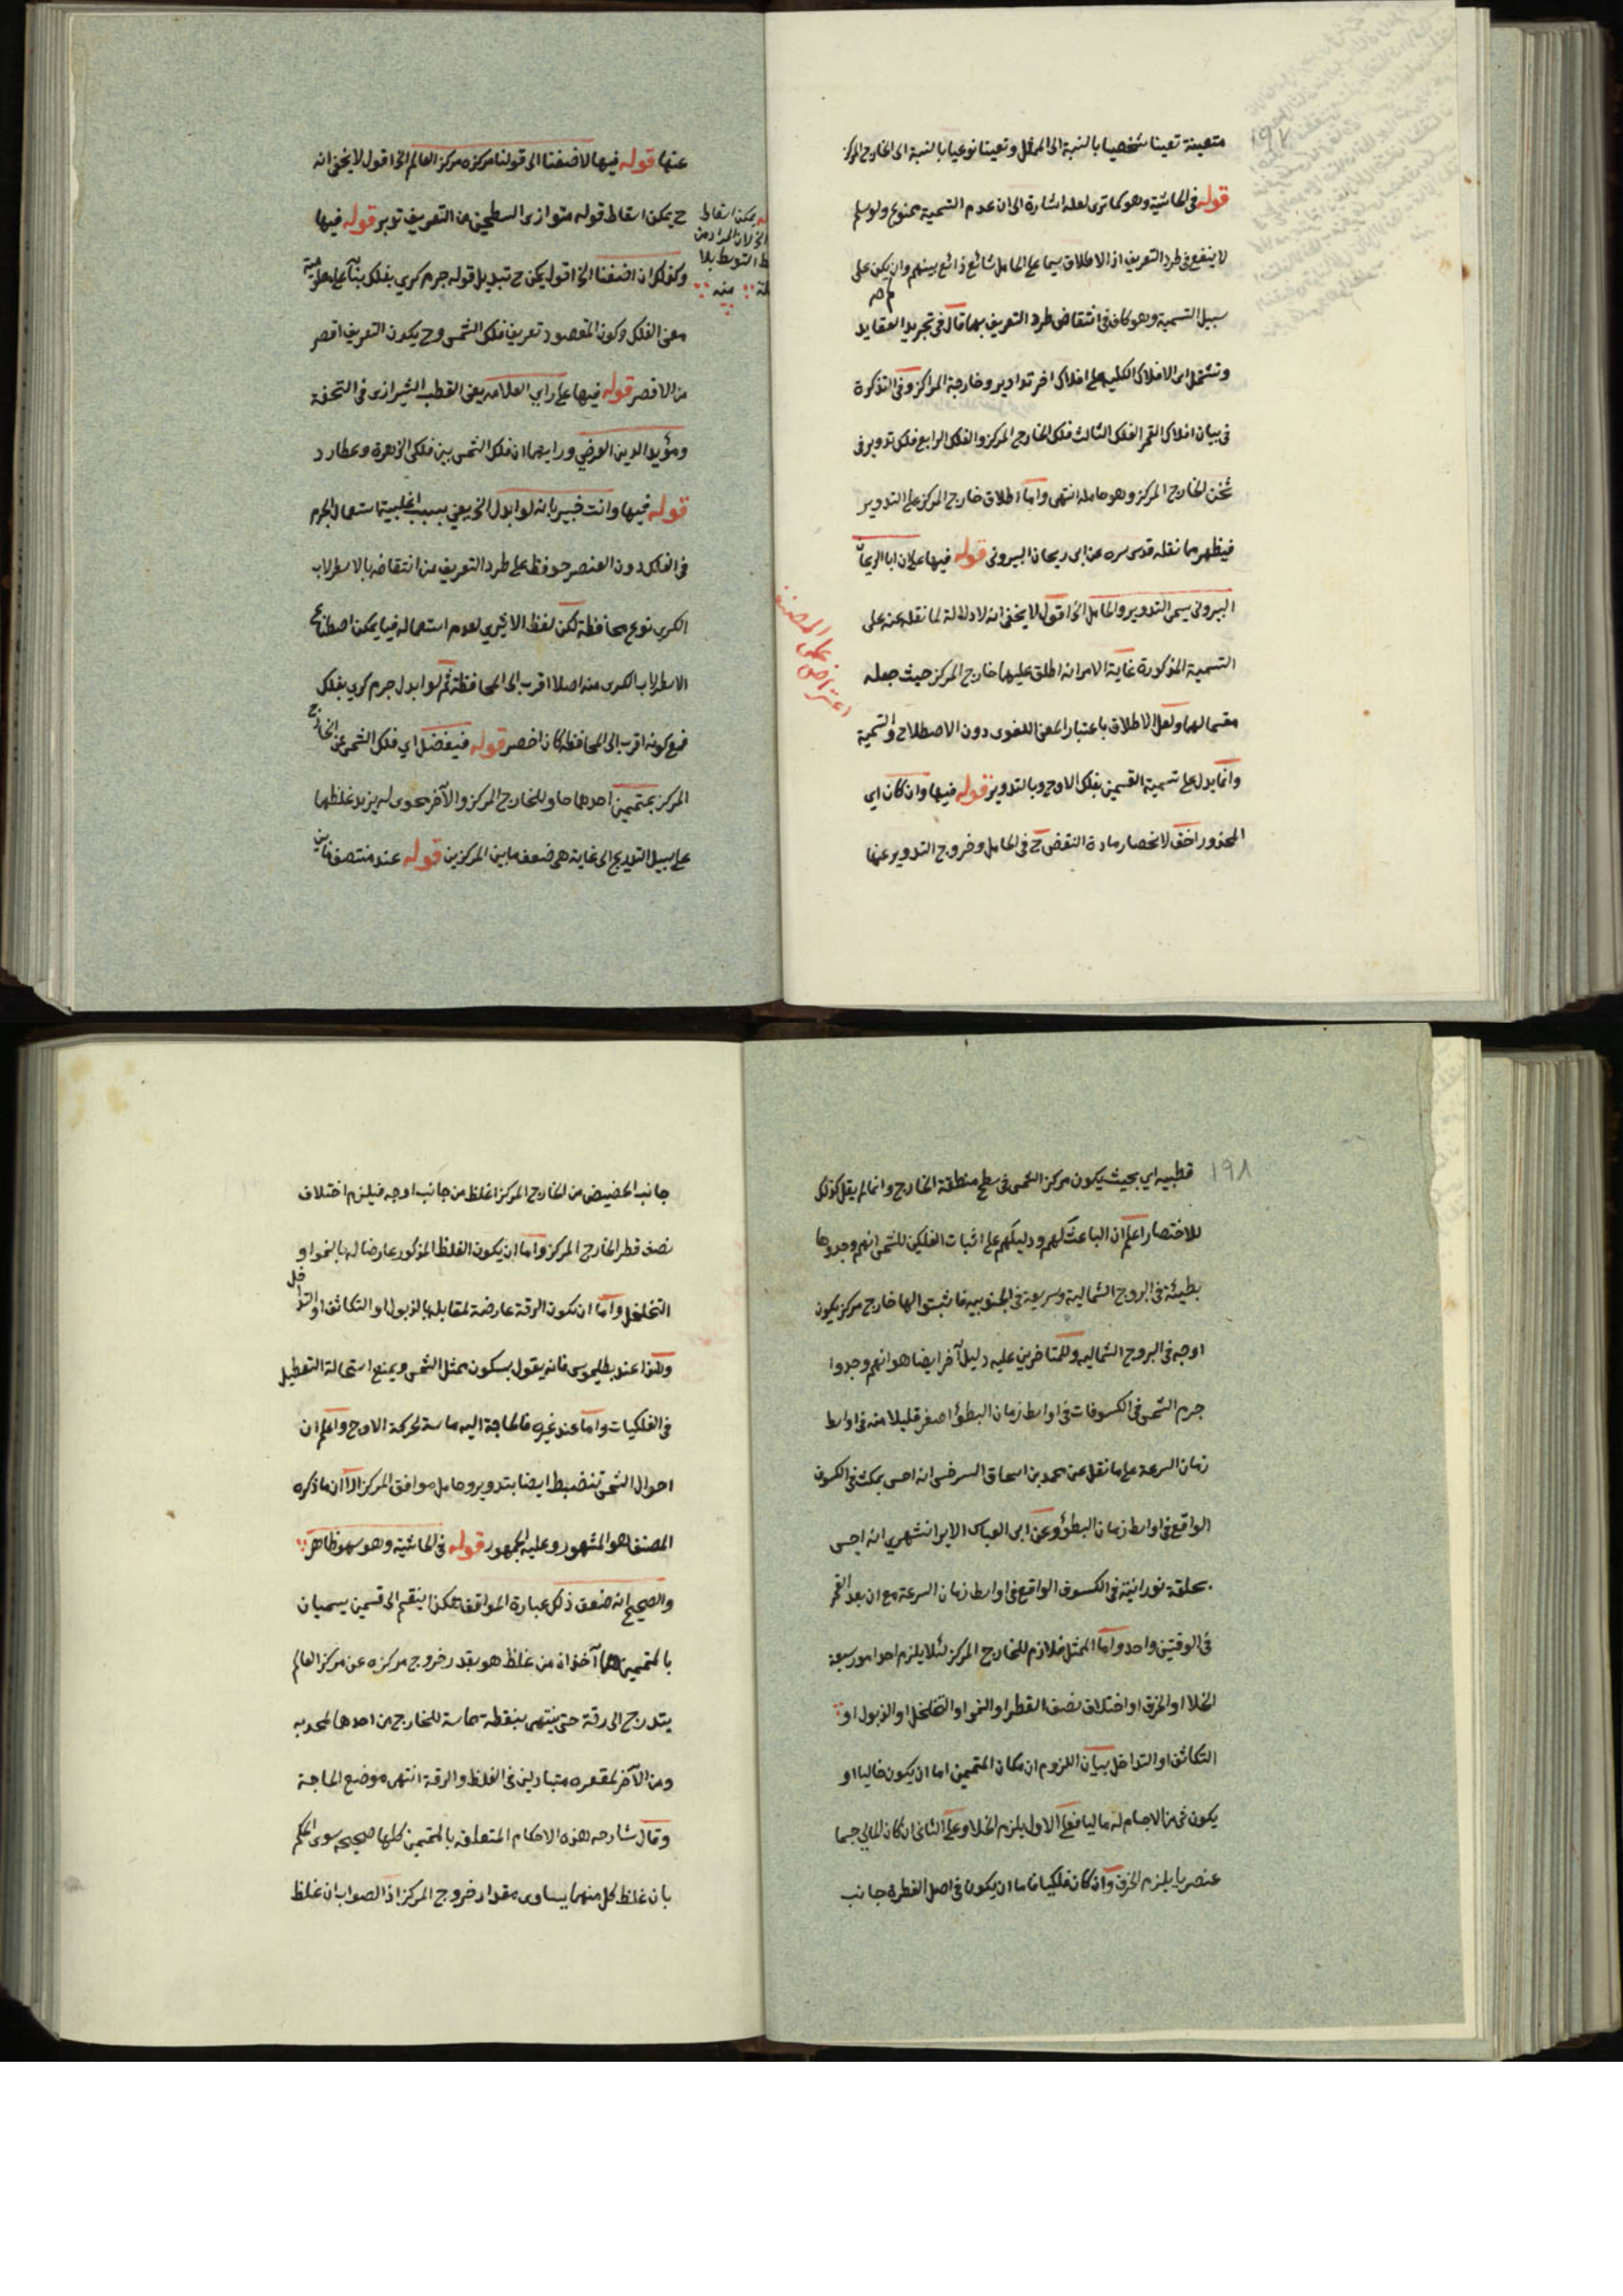 ١٩٧
متعينة تعينا شخصيا بالنسبة الى الممثل وتعينا نوعيا بالنسبة الى الخارج المركز
قوله في الحاشية وهو كما ترى لعله اشارة الى ان عدم التسمية ممنوع ولو سلم
لا ينفع في طرد التعريف اذ الاطلاق سيما على الحامل شائع ذائع بينهم وان لم يكن على
سبيل التسمية وهو كاف في انتقاض طرد التعريف بهما قال في تجريد العقايد
وتشتمل اى الافلاك الكلية على افلاك اخر تداوير وخارجة المراكز وفي التذكرة
في بيان افلاك القمر الفلك الثالث فلك الخارج المركز والفلك الرابع فلك تدوير في
ثخن الخارج المركز وهو حامله انتهى واما اطلاق خارج المركز على التدوير
فيظهر مما نقله قدس سره عن ابى ريحان البيروني قوله فيها على ان ابا الريحان
البيرونى يسمى التدوير والحامل الخ اقول لا يخفى انه لا دلالة لما نقله عنه على
التسمية المذكورة غاية الامر انه اطلق عليهما خارج المركز حيث جعله
مقسما لهما ولعل الاطلاق باعتبار المعنى اللغوى دون الاصطلاح والتسمية
وانما يدل على تسمية القسمين بفلك الاوج وبالتدوير قوله فيها وان كان اى
المحذور اخف لانحصار مادة النقض ح في الحامل وخروج التدوير عنها
اعتراض على المصنف
عنها قوله فيها لاضفنا الى قولنا مركزه مركز العالم الخ اقول لا يخفى انه
ح يمكن اسقاط قوله متوازى السطحين من التعريف تدبر قوله فيها
وكذلك ان اضفنا الخ اقول يمكن ح تبديل قوله جرم كرى بفلك بناء على معلومية
معنى الفلك وكون المقصود تعريف فلك الشمس وح يكون التعريف اقصر
من الاقصر قوله فيها على راى العلامه يعنى القطب الشيرازى في التحفة
ومؤيد الدين العرضى ورايهما ان فلك الشمس بين فلكى الزهرة وعطارد
قوله فيها وانت خبير بانه لو ابدل الخ يعنى بسبب اغلبية استعمال الجرم
في الفلك دون العنصر حوفظ على طرد التعريف من انتقاضه بالاسطرلاب
الكرى نوع محافظة لكن لفظ الاثيرى لعدم استعماله فيما يمكن اصطناع
الاسطرلاب الكرى منه اصلا اقرب الى المحافظة ثم لو ابدل جرم كرى بفلك
فمع كونه اقرب الى المحافظه كان اخصر قوله فيفضل اى فلك الشمس عن الخارج
المركز بمتممين احدهما حاو للخارج المركز والآخر محوى له يزيد غلظهما
على سبيل التدريج الى غاية هى ضعف ما بين المركزين قوله عند منتصف ما بين
يمكن اسقاط
الخ لان المراد من
التوسط بلا
منه
١٩٨
قطبيه اى بحيث يكون مركز الشمس في سطح منطقة الخارج وانما لم يقل كذلك
للاختصار اعلم ان الباعث لهم ودليلهم على اثبات الفلكين للشمس انهم وجدوها
بطيئة في البروج الشمالية وسريعة في الجنوبيه فاثبتوا لها خارج مركز يكون
اوجه في البروج الشماليه وللمتاخرين عليه دليل آخر ايضا هو انهم وجدوا
جرم الشمس في الكسوفات في اواسط زمان البطؤ اصغر قليلا منه في اواسط
زمان السرعة على ما نقل عن محمد بن اسحاق السرخسى انه احس بمكث في الكسوف
الواقع في اواسط زمان البطؤ وعن ابى العباس الايرانشهرى انه احس
بحلقة نورانية في الكسوف الواقع في اواسط زمان السرعة مع ان بعد القمر
في الوقتين واحد واما الممثل فلازم للخارج المركز لئلا يلزم احد امور سبعة
الخلا او الخرق او اختلاف نصف القطر او النمو او التخلخل او الذبول او
التكاثف او التداخل بيان اللزوم ان مكان المتممين اما ان يكون خاليا او
يكون شئ من الاجسام له ماليا فعلى الاول يلزم الخلا وعلى الثانى ان كان المالى جسما
عنصريا يلزم الخرق وان كان فلكيا فاما ان يكون في اصل الفطرة جانب
جانب الحضيض من الخارج المركز اغلظ من جانب اوجه فيلزم اختلاف
نصف قطر الخارج المركز واما ان يكون الغلظ المذكور عارضا له بالنمو او
التخلخل واما ان تكون الرقة عارضة لمقابلها بالذبول او التكاثف او التداخل
وهذا عند بطليموس فانه يقول بسكون ممثل الشمس ويمنع استحالة التعطيل
في الفلكيات واما عند غيره فالحاجة اليه ماسة لحركة الاوج واعلم ان
احوال الشمس تنضبط ايضا بتدوير وحامل موافق المركز الا ان ما ذكره
المصنف هو المشهور وعليه الجمهور قوله في الحاشية وهو سهو ظاهر
والصحيح انه ضعف ذلك عبارة المواقف هكذا ينقسم الى قسمين يسميان
بالمتممين هما آخذان من غلظ هو بقدر خروج مركزه عن مركز العالم
يتدرج الى رقة حتى ينتهى بنقطة مماسة للخارج من احدهما لمحدبه
ومن الآخر لمقعره متبادلين في الغلظ والرقة انتهى موضع الحاجة
وقال شارحه هذه الاحكام المتعلقه بالمتممين كلها صحيحه سوى الحكم
بان غلظ كل منهما يساوى مقدار خروج المركز اذ الصواب ان غلظ